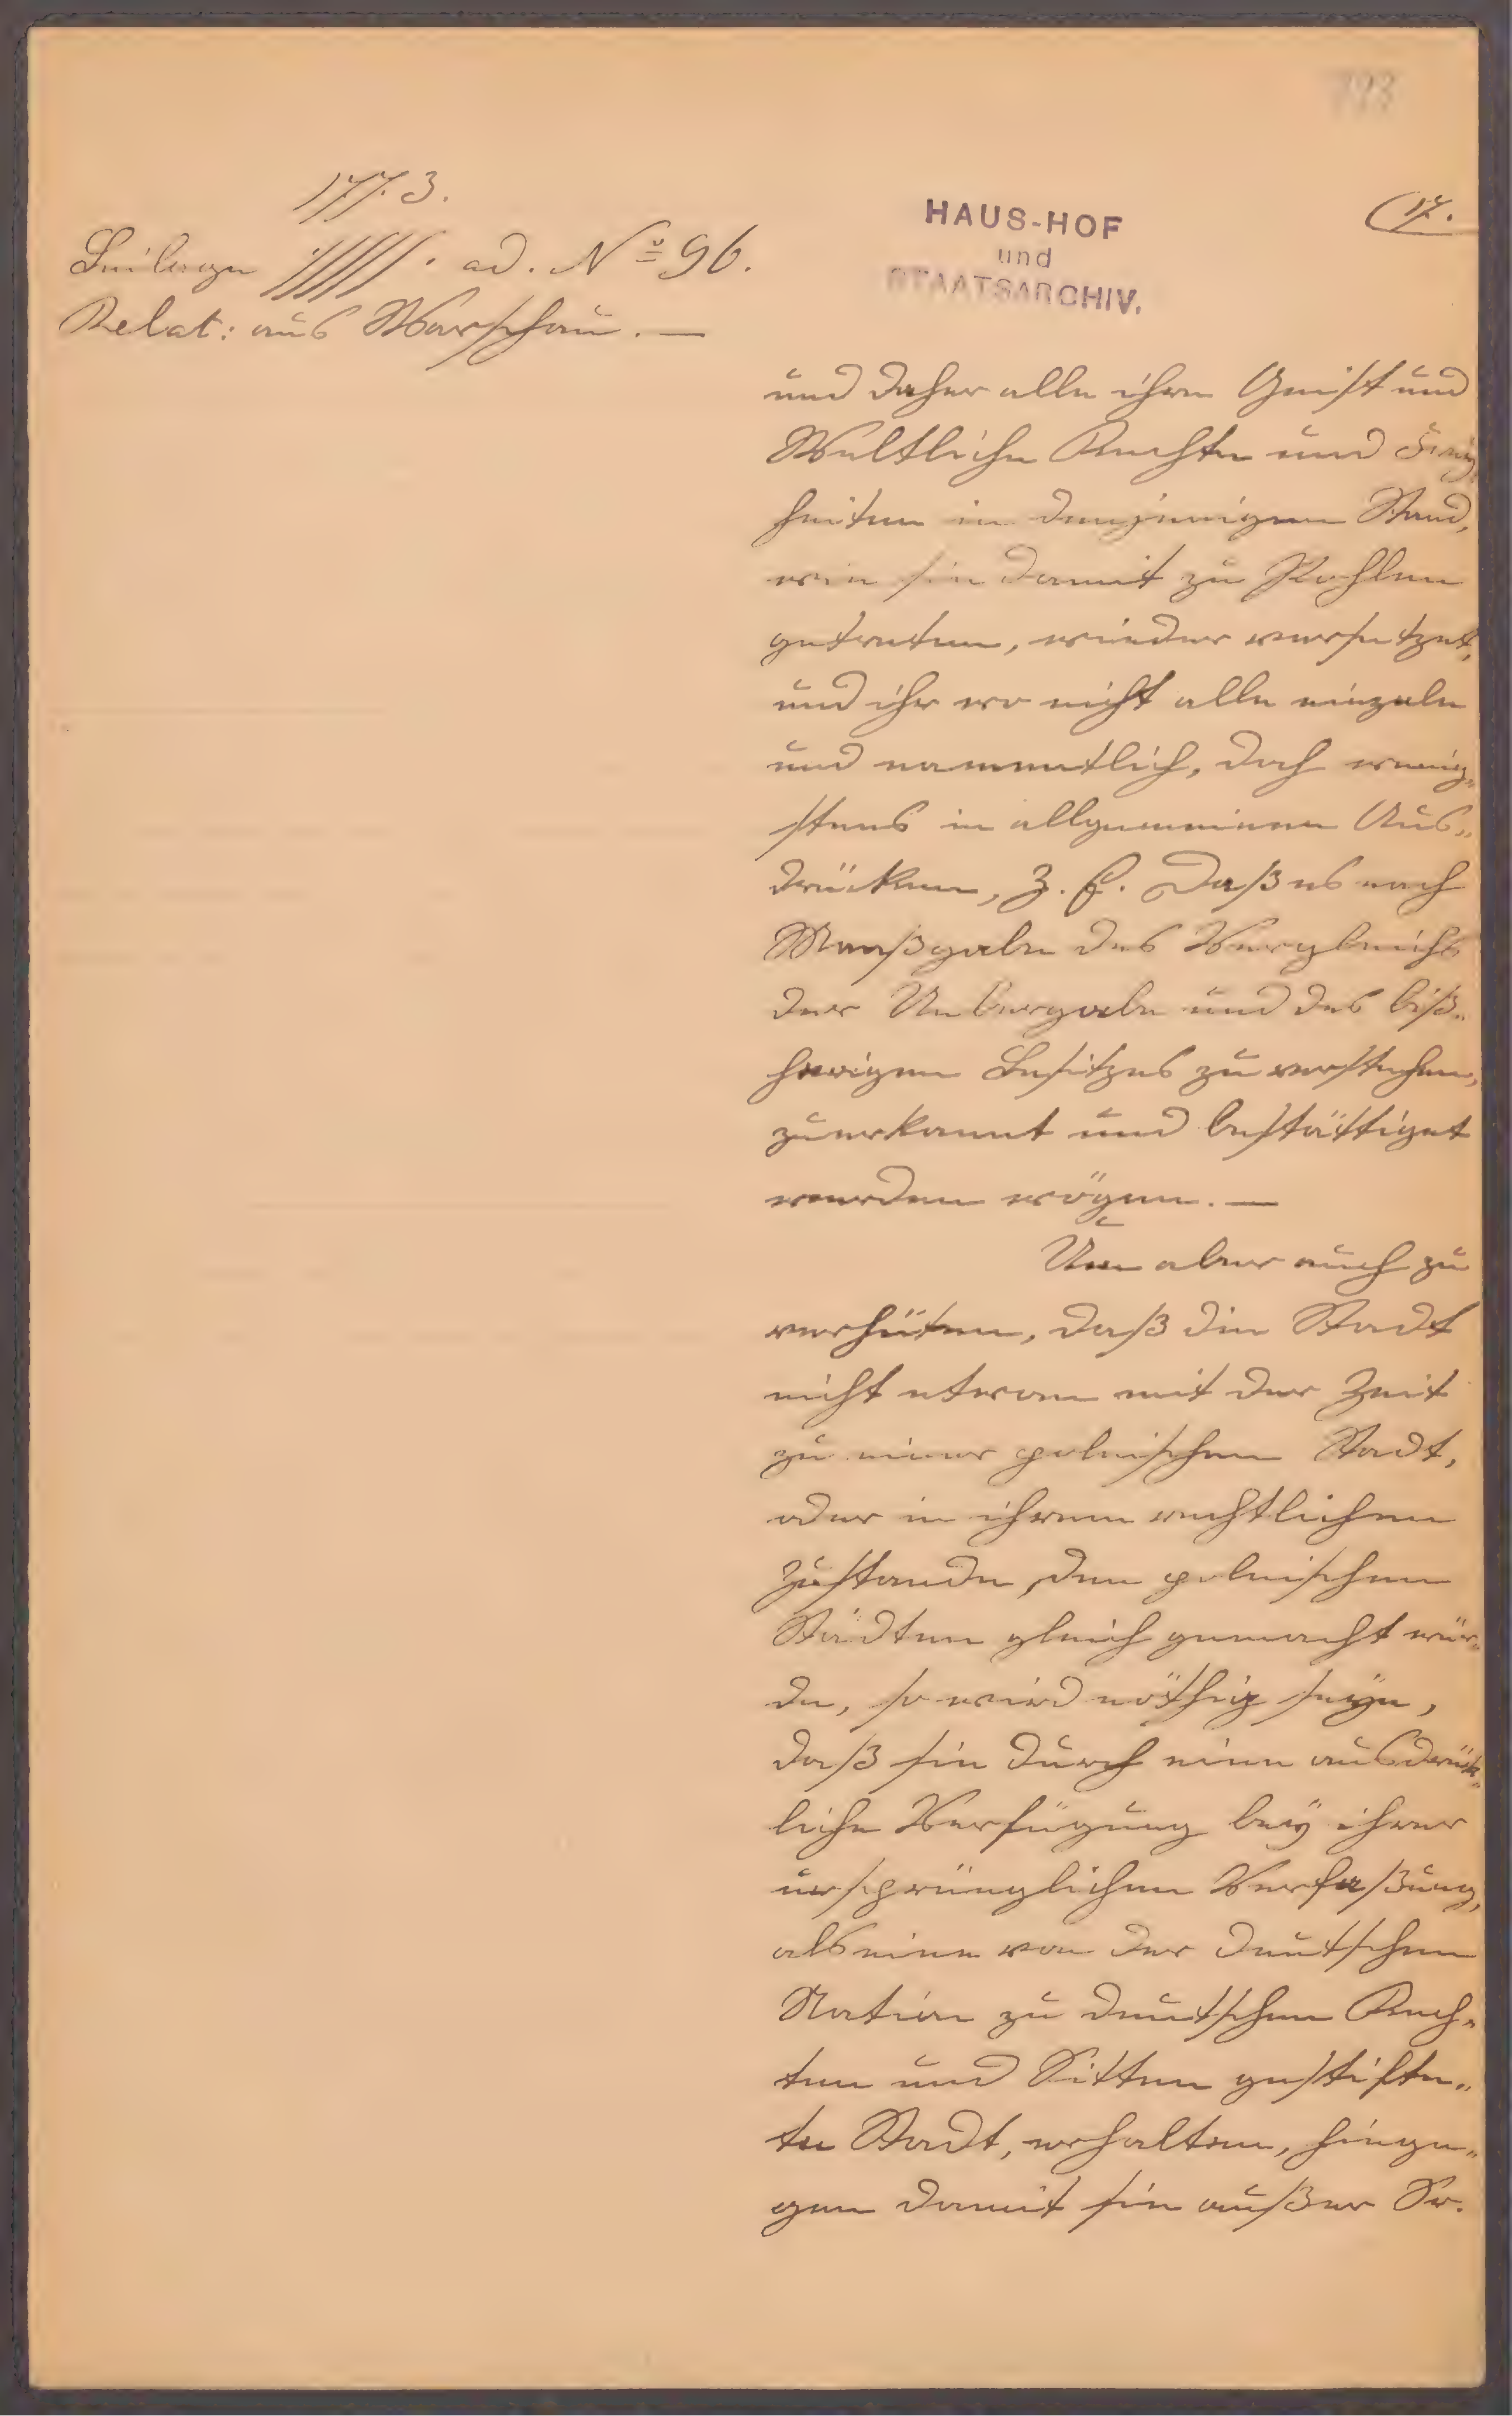 1773.
Beilage ad. Nº 96.
Relat: aus Warschau. —
HAUS-HOF
und
STAATSARCHIV.
(17.
und daher alle ihre Geist und
Weltliche Rechte und Frey
heiten in denjenigen Stand,
wie sie damit zu Pohlen
getreten, wieder versetzet,
und ihr wo nicht alle einzeln
und namentlich, doch wenig„
stens in allgemeinen Aus„
drücken, z. E. daß es nach
Maaßgabe des Vergleichs
der Uebergabe und des biß„
herigen Besitzes zu verstehen,
zuerkannt und bestättiget
werden mögen. —
Um aber auch zu
verhüten, daß die Stadt
nicht etwan mit der Zeit
zu einer polnischen Stadt,
oder in ihrem rechtlichen
Zustande, den polnischen
Städten gleich gemacht wür„
de, so wird nöthig seyn,
daß sie durch eine ausdrük„
liche Verfügung bey ihrer
ursprünglichen Verfaßung,
als eine von der deutschen
Nation zu deutschen Rech„
ten und Sitten gestifte„
te Stadt, erhalten, hinge„
gen damit sie außer Sr.